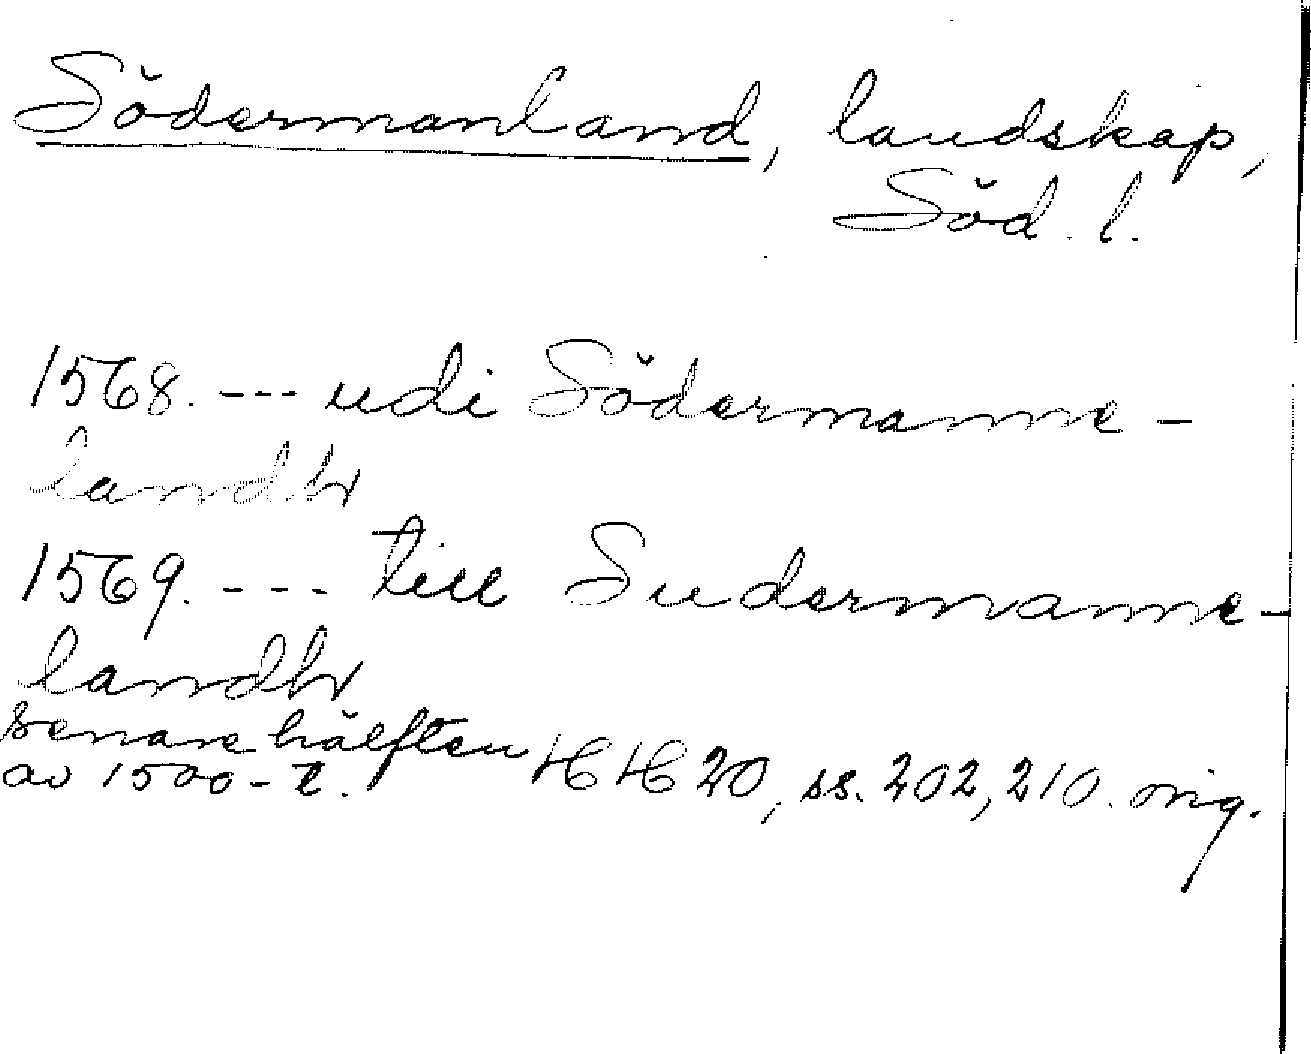 Södermanland, landskap,
Söd. l.
1568. --- udi Södermanne-
landh
1569. --- till Sudermanne-
landh
senare hälften
av 1500-t. HH 20, ss. 202, 210. orig.